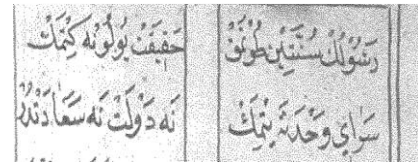 رَسُولُڭ سُنَّتِينْ طُوتُقْ حَقِيقَتْ يُولُونَه كِتْمَكْ
سَرَايِ وَحْدَتَه يَتْمَكْ نَه دَوْلَتْ نَه سَعَادَتْدُرْ